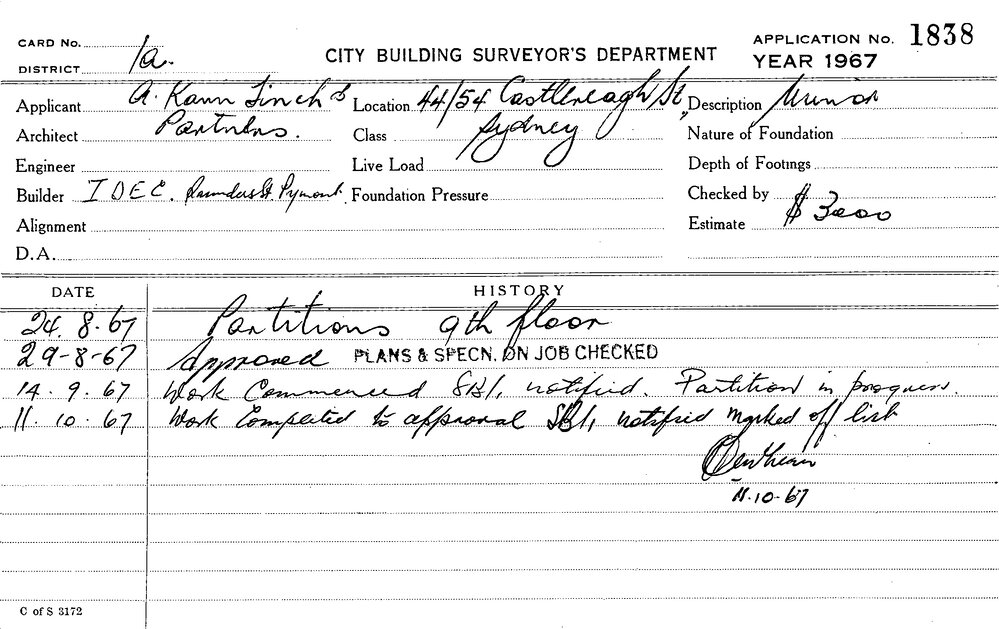 CARD No.
DISTRICT 1a.
CITY BUILDING SURVEYOR'S DEPARTMENT
APPLICATION No. 1838
YEAR 1967
Applicant A. Kann Finch & Location 44/54 Castlereagh St, Description Minor
Architect Partners. Class Sydney Nature of Foundation
Engineer Live Load Depth of Footings
Builder I D E C. Saunders St. Pyrmont. Foundation Pressure Checked by
Alignment Estimate $ 3000
D.A.
DATE HISTORY
24. 8. 67 Partitions 9th floor
29-8-67 Approved PLANS & SPECN. ON JOB CHECKED
14. 9. 67 Work Commenced SBI, notified. Partition in progress.
11. 10. 67 Work Completed to approval SBI, notified marked off list
11.10.67
C of S 3172